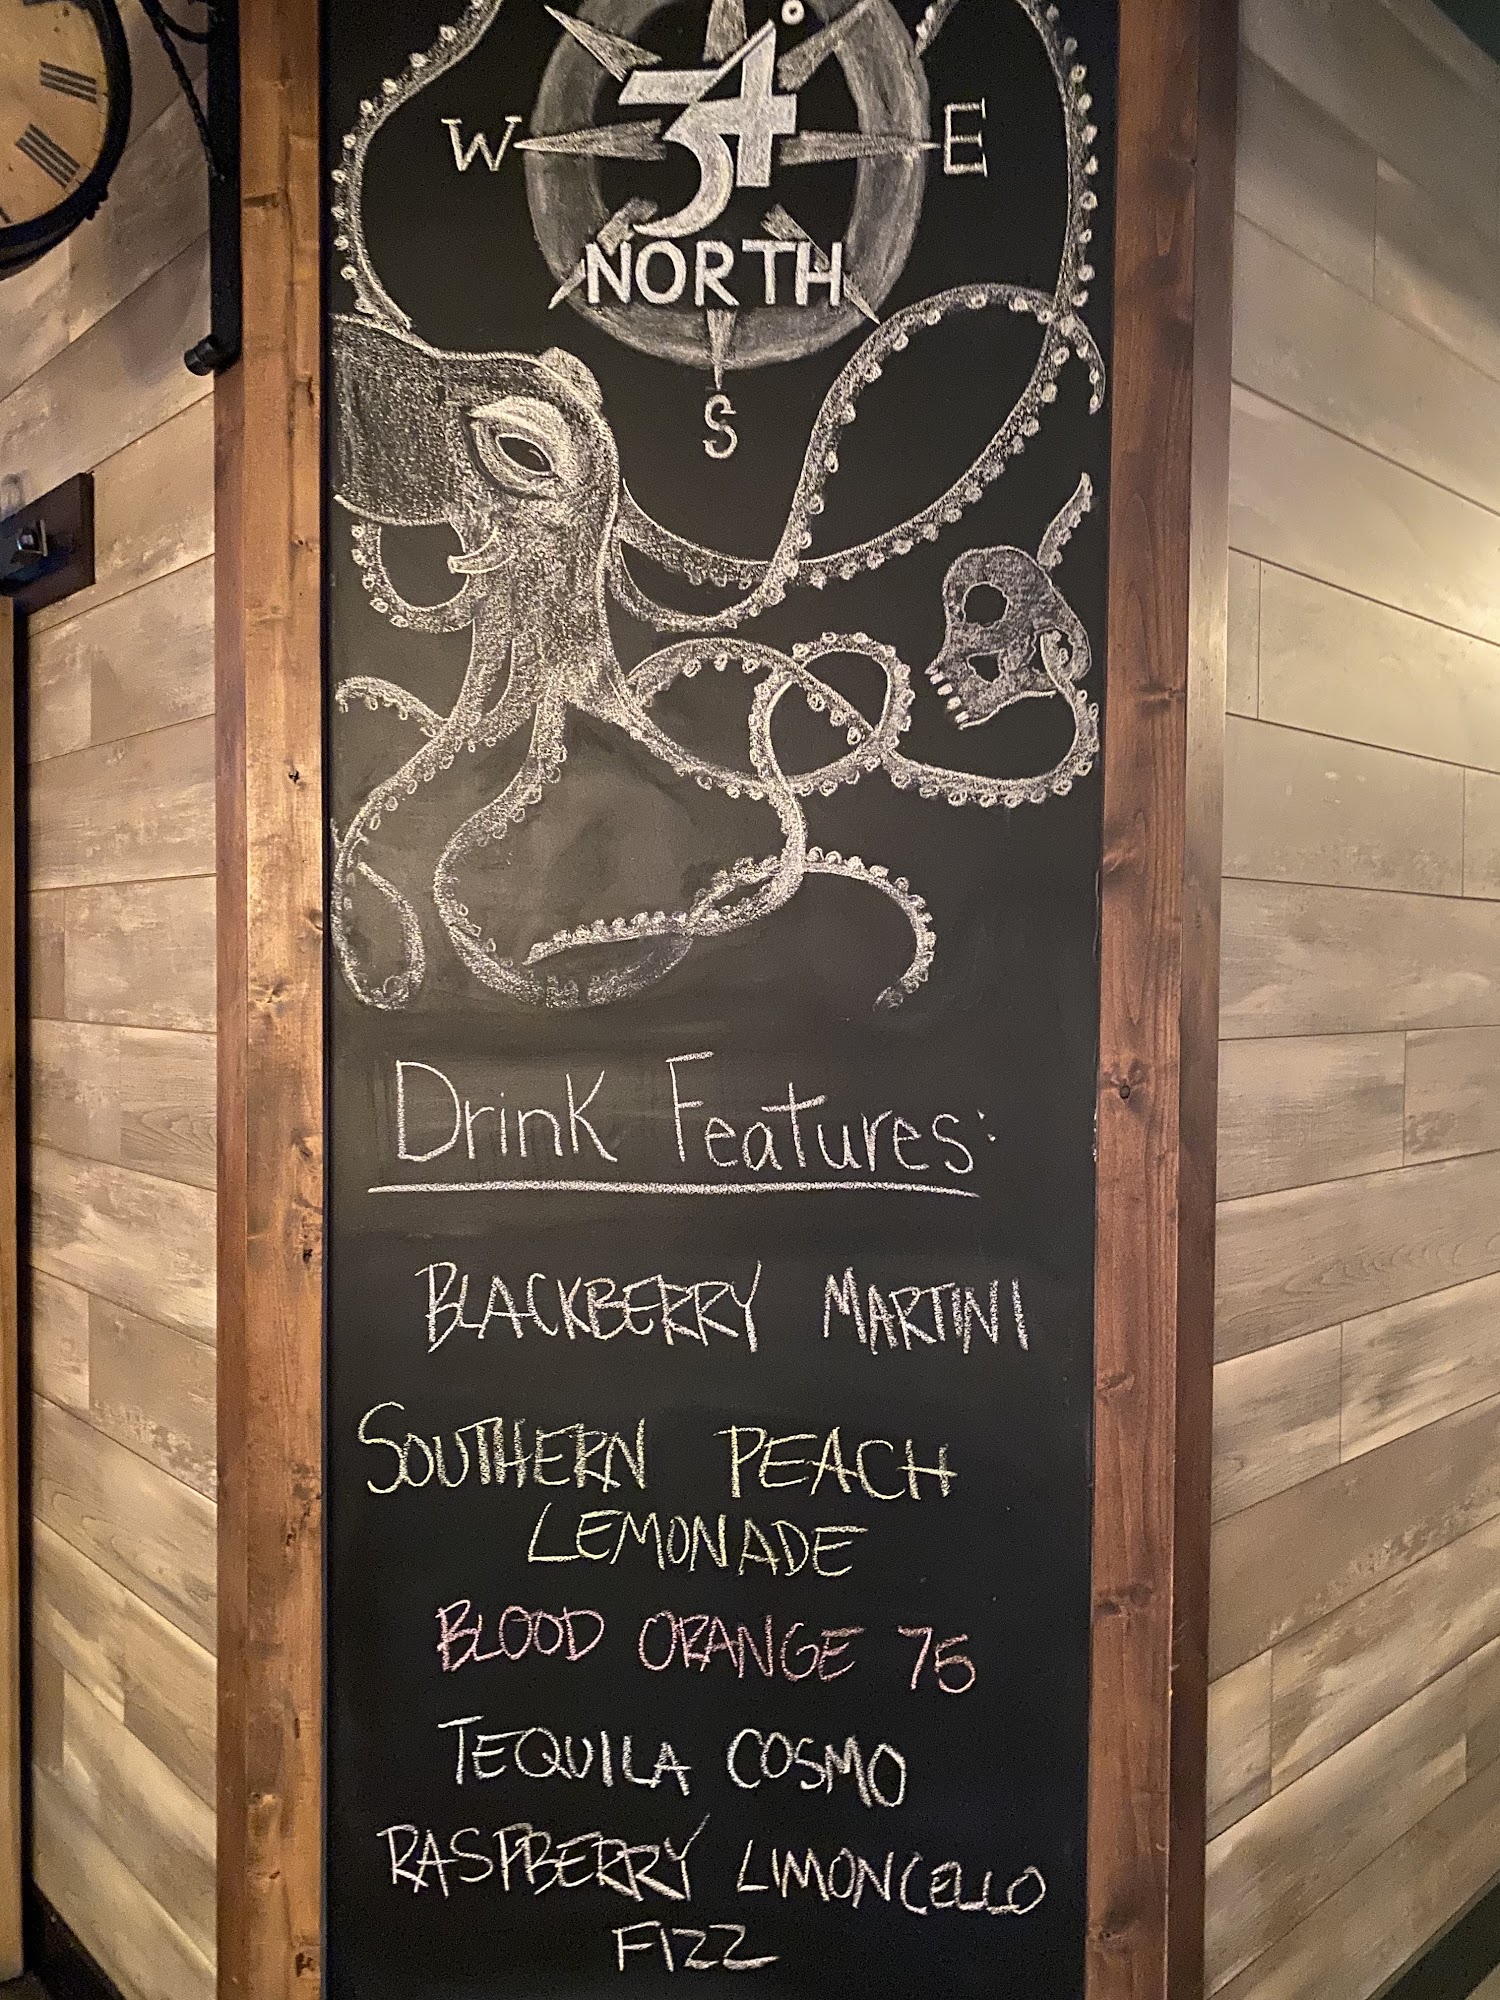 34°
W E
NORTH
S
Drink Features:
BLACKBERRY MARTINI
SOUTHERN PEACH
LEMONADE
BLOOD ORANGE 75
TEQUILA COSMO
RASPBERRY LIMONCELLO
FIZZ